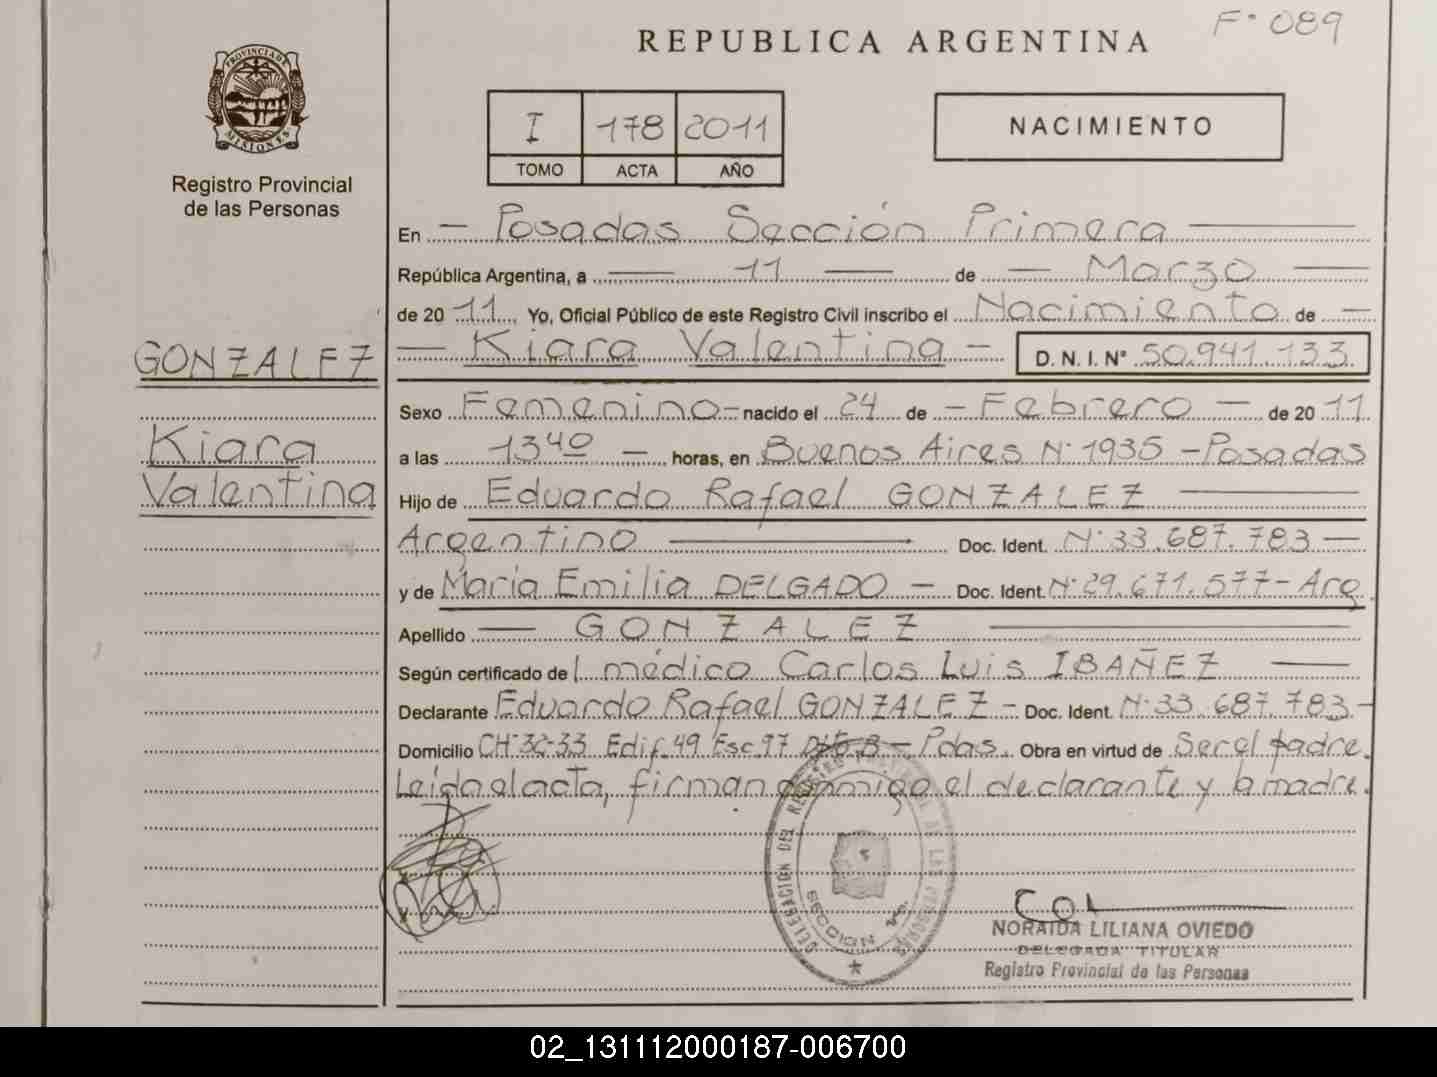 F. 089
REPUBLICA ARGENTINA
PROVINCIA DE MISIONES
Registro Provincial
de las Personas
I 178 2011
TOMO ACTA AÑO
NACIMIENTO
En — Posadas Sección Primera —
República Argentina, a — 11 — de — Marzo —
de 2011 Yo, Oficial Público de este Registro Civil inscribo el Nacimiento de —
— Kiara Valentina — D. N. I. Nº 50.941.133
GONZALEZ
Kiara
Valentina
Sexo Femenino — nacido el 24 de — Febrero — de 2011
a las 13 40 — horas, en Buenos Aires Nº 1935 — Posadas
Hijo de Eduardo Rafael GONZALEZ —
Argentino — Doc. Ident. Nº 33.687.783 —
y de María Emilia DELGADO — Doc. Ident. Nº 29.671.577 — Arg
Apellido — GONZALEZ —
Según certificado del médico Carlos Luis IBAÑEZ —
Declarante Eduardo Rafael GONZALEZ — Doc. Ident. Nº 33.687.783 —
Domicilio CH. 32-33 Edif. 49 Esc. 97 Dpto B — Pdas. Obra en virtud de Ser el padre.
Leída el acta, firman conmigo el declarante y la madre.
DELEGACION DEL REGISTRO PROVINCIAL DE LAS PERSONAS
SECCION 1ra.
NORAIDA LILIANA OVIEDO
DELEGADA TITULAR
Registro Provincial de las Personas
02_131112000187-006700